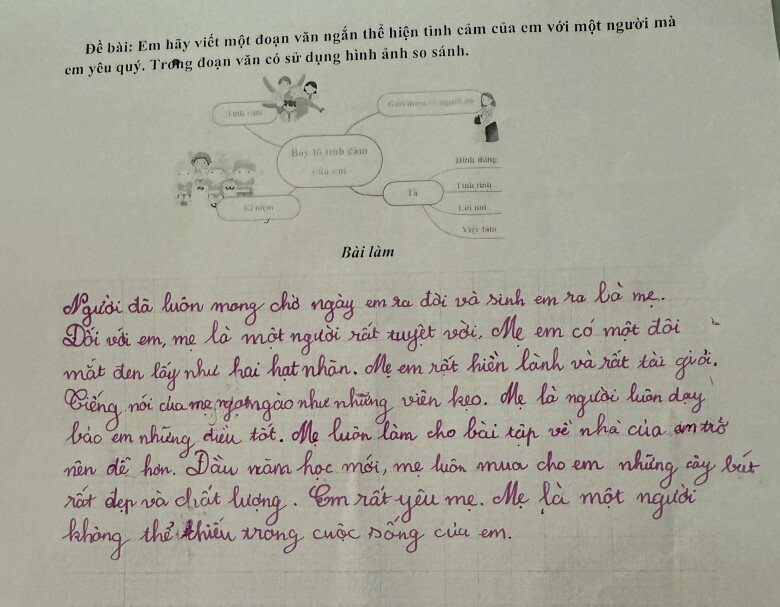 Đề bài: Em hãy viết một đoạn văn ngắn thể hiện tình cảm của em với một người mà
em yêu quý. Trong đoạn văn có sử dụng hình ảnh so sánh.
Tình cảm
Giới thiệu về người đó
Bày tỏ tình cảm
của em
Hình dáng
Tính tình
Tả
Lời nói
Kỉ niệm
Việc làm
Bài làm
Người đã luôn mong chờ ngày em ra đời và sinh em ra là mẹ.
Đối với em, mẹ là một người rất tuyệt vời. Mẹ em có một đôi
mắt đen láy như hai hạt nhãn. Mẹ em rất hiền lành và rất tài giỏi.
Tiếng nói của mẹ ngọt ngào như những viên kẹo. Mẹ là người luôn dạy
bảo em những điều tốt. Mẹ luôn làm cho bài tập về nhà của em trở
nên dễ hơn. Đầu năm học mới, mẹ luôn mua cho em những cây bút
rất đẹp và chất lượng. Em rất yêu mẹ. Mẹ là một người
không thể thiếu trong cuộc sống của em.